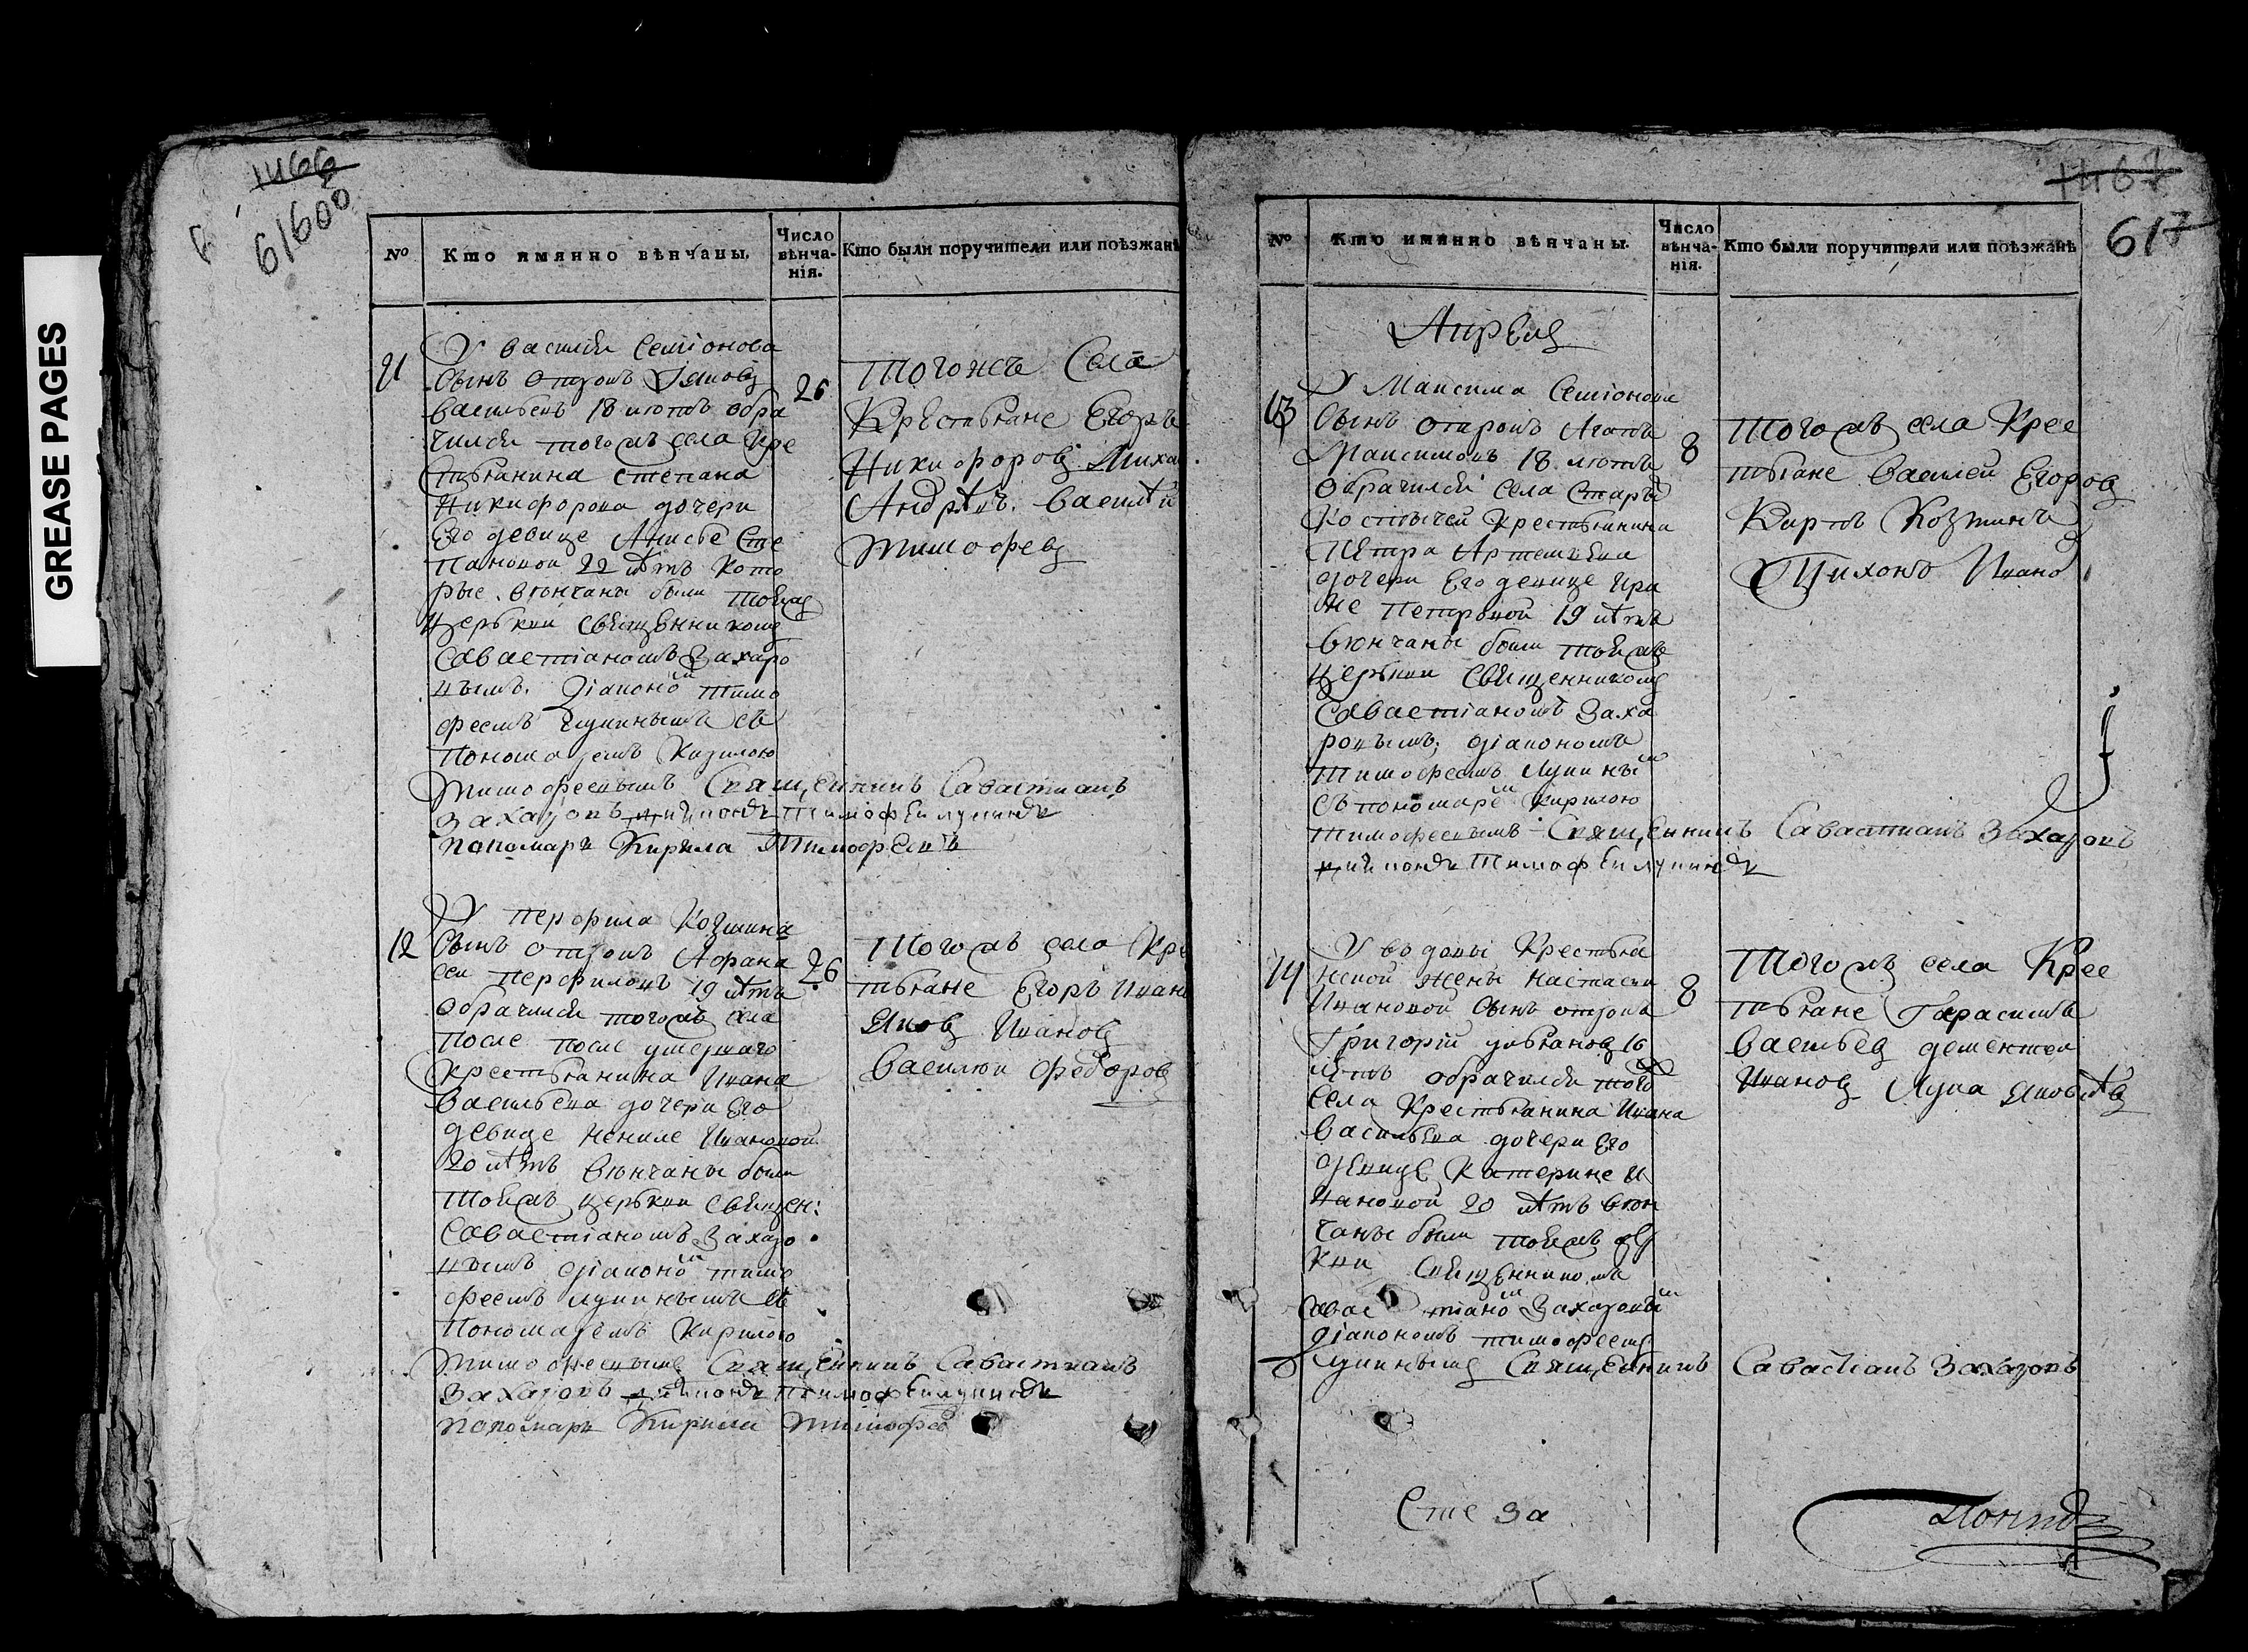 GREASE PAGES
1466
61600
№
Кто имянно вѣнчаны.
Число вѣнча-нія.
Кто были поручители или поѣзжанѣ
У василья семіонова
сынъ отрокъ Яковъ
васильевъ 18 лютъ обра
чился тогожъ села кре
стьянина степана
никифорова дочери
Его девице Анисье Сте
пановой 22 лѣтъ кото
рые вюнчаны были тояжъ
церькви свящЕнникомъ
Савастіаномъ Захаро
вымъ діакономъ тимо
феемъ лупинымъ съ
пономаремъ Кирилою
тимофеевымъ СвящЕнникъ Савастианъ
Захаровъ диаконъ Тимофеи лупинъ
пономарь Кирила Тимофеевъ
26
Тогожъ Села
КрЕстьяне Егоръ
Никифоровъ Миха
Андрѣвъ василѣй
тимофевъ
12
У перфила Козмина
сынъ отрокъ Афана
сеи перфиловъ 19 лѣтъ
обрачился тогожъ села
после после умершаго
крестьянина Ивана
васильева дочери Его
девице Нениле Ивановой
20 лѣтъ вюнчаны были
тояжъ церькви священ:
Савастіаномъ Захаро
вымъ діакономъ тимо
феемъ лупинымъ съ
пономаремъ Кирилою
тимофеевымъ СвящЕнникъ Савастианъ
Захаровъ диаконъ Тимофеи лупинъ
пономарь Кирила тимофее
26
Тогожъ села Кре
тьяне Егоръ Иван
Яковъ Ивановъ
василюй федоровъ
1467
617
№
Кто имянно вѣнчаны.
Число вѣнча-нія.
Кто были поручители или поѣзжанѣ
АпрЕля
13
У Максима Семіонова
сынъ отрокъ Агапъ
Максимовъ 18 лютъ
обрачился села Стары
Костычей крестьянина
ПЕтра АртемьЕва
дочери Его девице Ири
не петровой 19 лѣтъ
вюнчаны были тояжъ
церькви СвящЕнникомъ
Савастіаномъ Заха
ровымъ, діакономъ
тимофеемъ лупинымъ
съ пономаремъ Кирилою
тимофеевымъ СвящЕнникъ Савастианъ Захаровъ
диаконъ Тимофеи лупинъ
8
Тогожъ села Крес
тьяне василеи Егоровъ
Карпъ Козминъ
Тихонъ Ивано
14
У вдовы Крестья
нской жены настасьи
Ивановой сынъ отрокъ
Григорій ульяновъ 16
лѣтъ обрачился тогожъ
села Крестьянина Ивана
васильЕва дочери Его
дЕвицЕ Катерине И
вановой 20 лѣтъ вюн
чаны были тояжъ цер
кви свящЕнникомъ
Савастіаномъ Захаровымъ
діакономъ тимофеемъ
лупинымъ СвящЕнникъ Савастіанъ Захаровъ
8
Тогожъ села Крес
тьяне Гарасимъ
васильевъ дементеи
Ивановъ Лука Яковлѣвъ